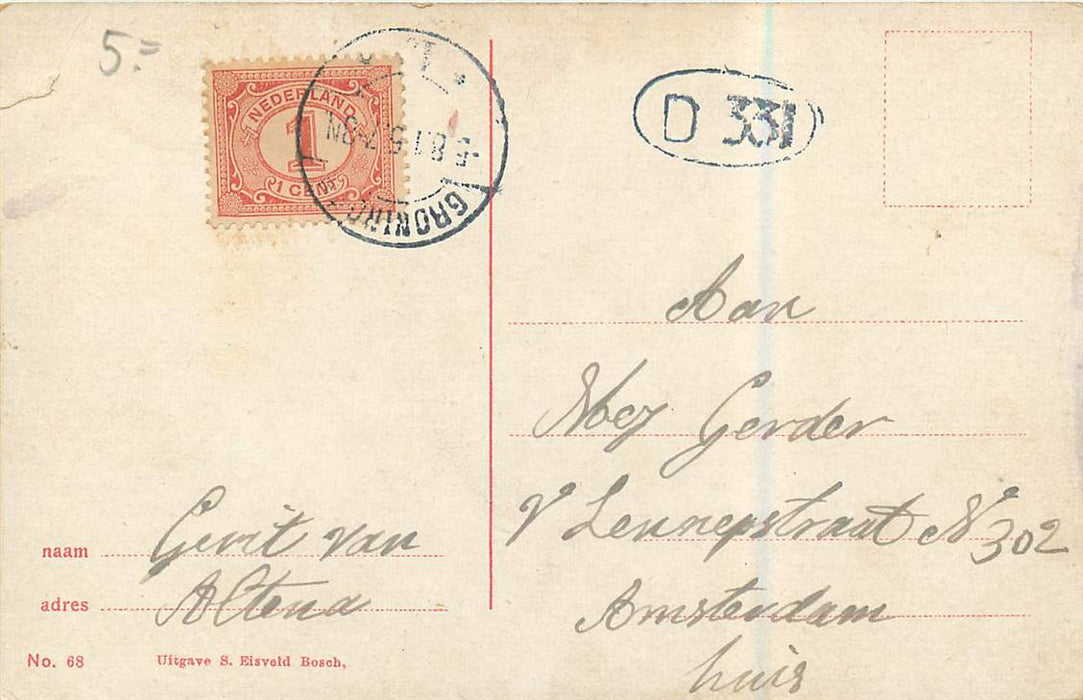 5=
NEDERLAND
1
1 CENT
-5.8.15.7-8N
GRONING
D 331
Aan
Mej Gerder
v Lennepstraat No 302
Amsterdam
huis
naam Gerrit van
adres Altena
No. 68 Uitgave S. Eisveld Bosch.